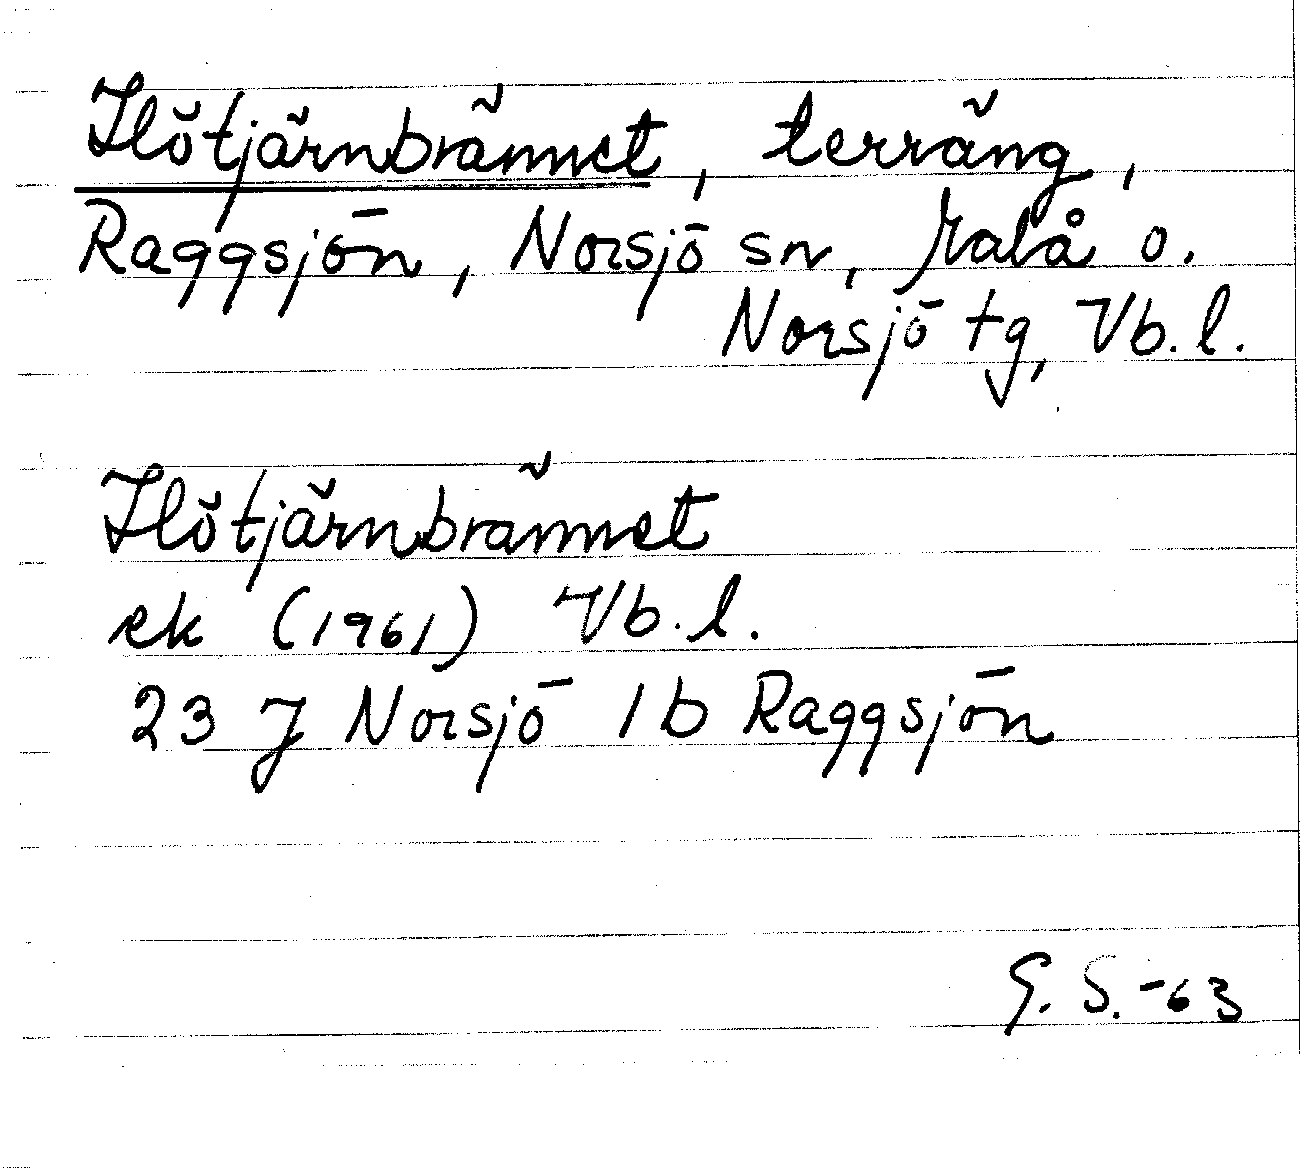 Hötjärnbrännet, terräng,
Raggsjön, Norsjö sn, Malå o.
Norsjö tg, Vb.l.
Hötjärnbrännet
ek (1961) Vb.l.
23 J Norsjö 1b Raggsjön
G. S. -63